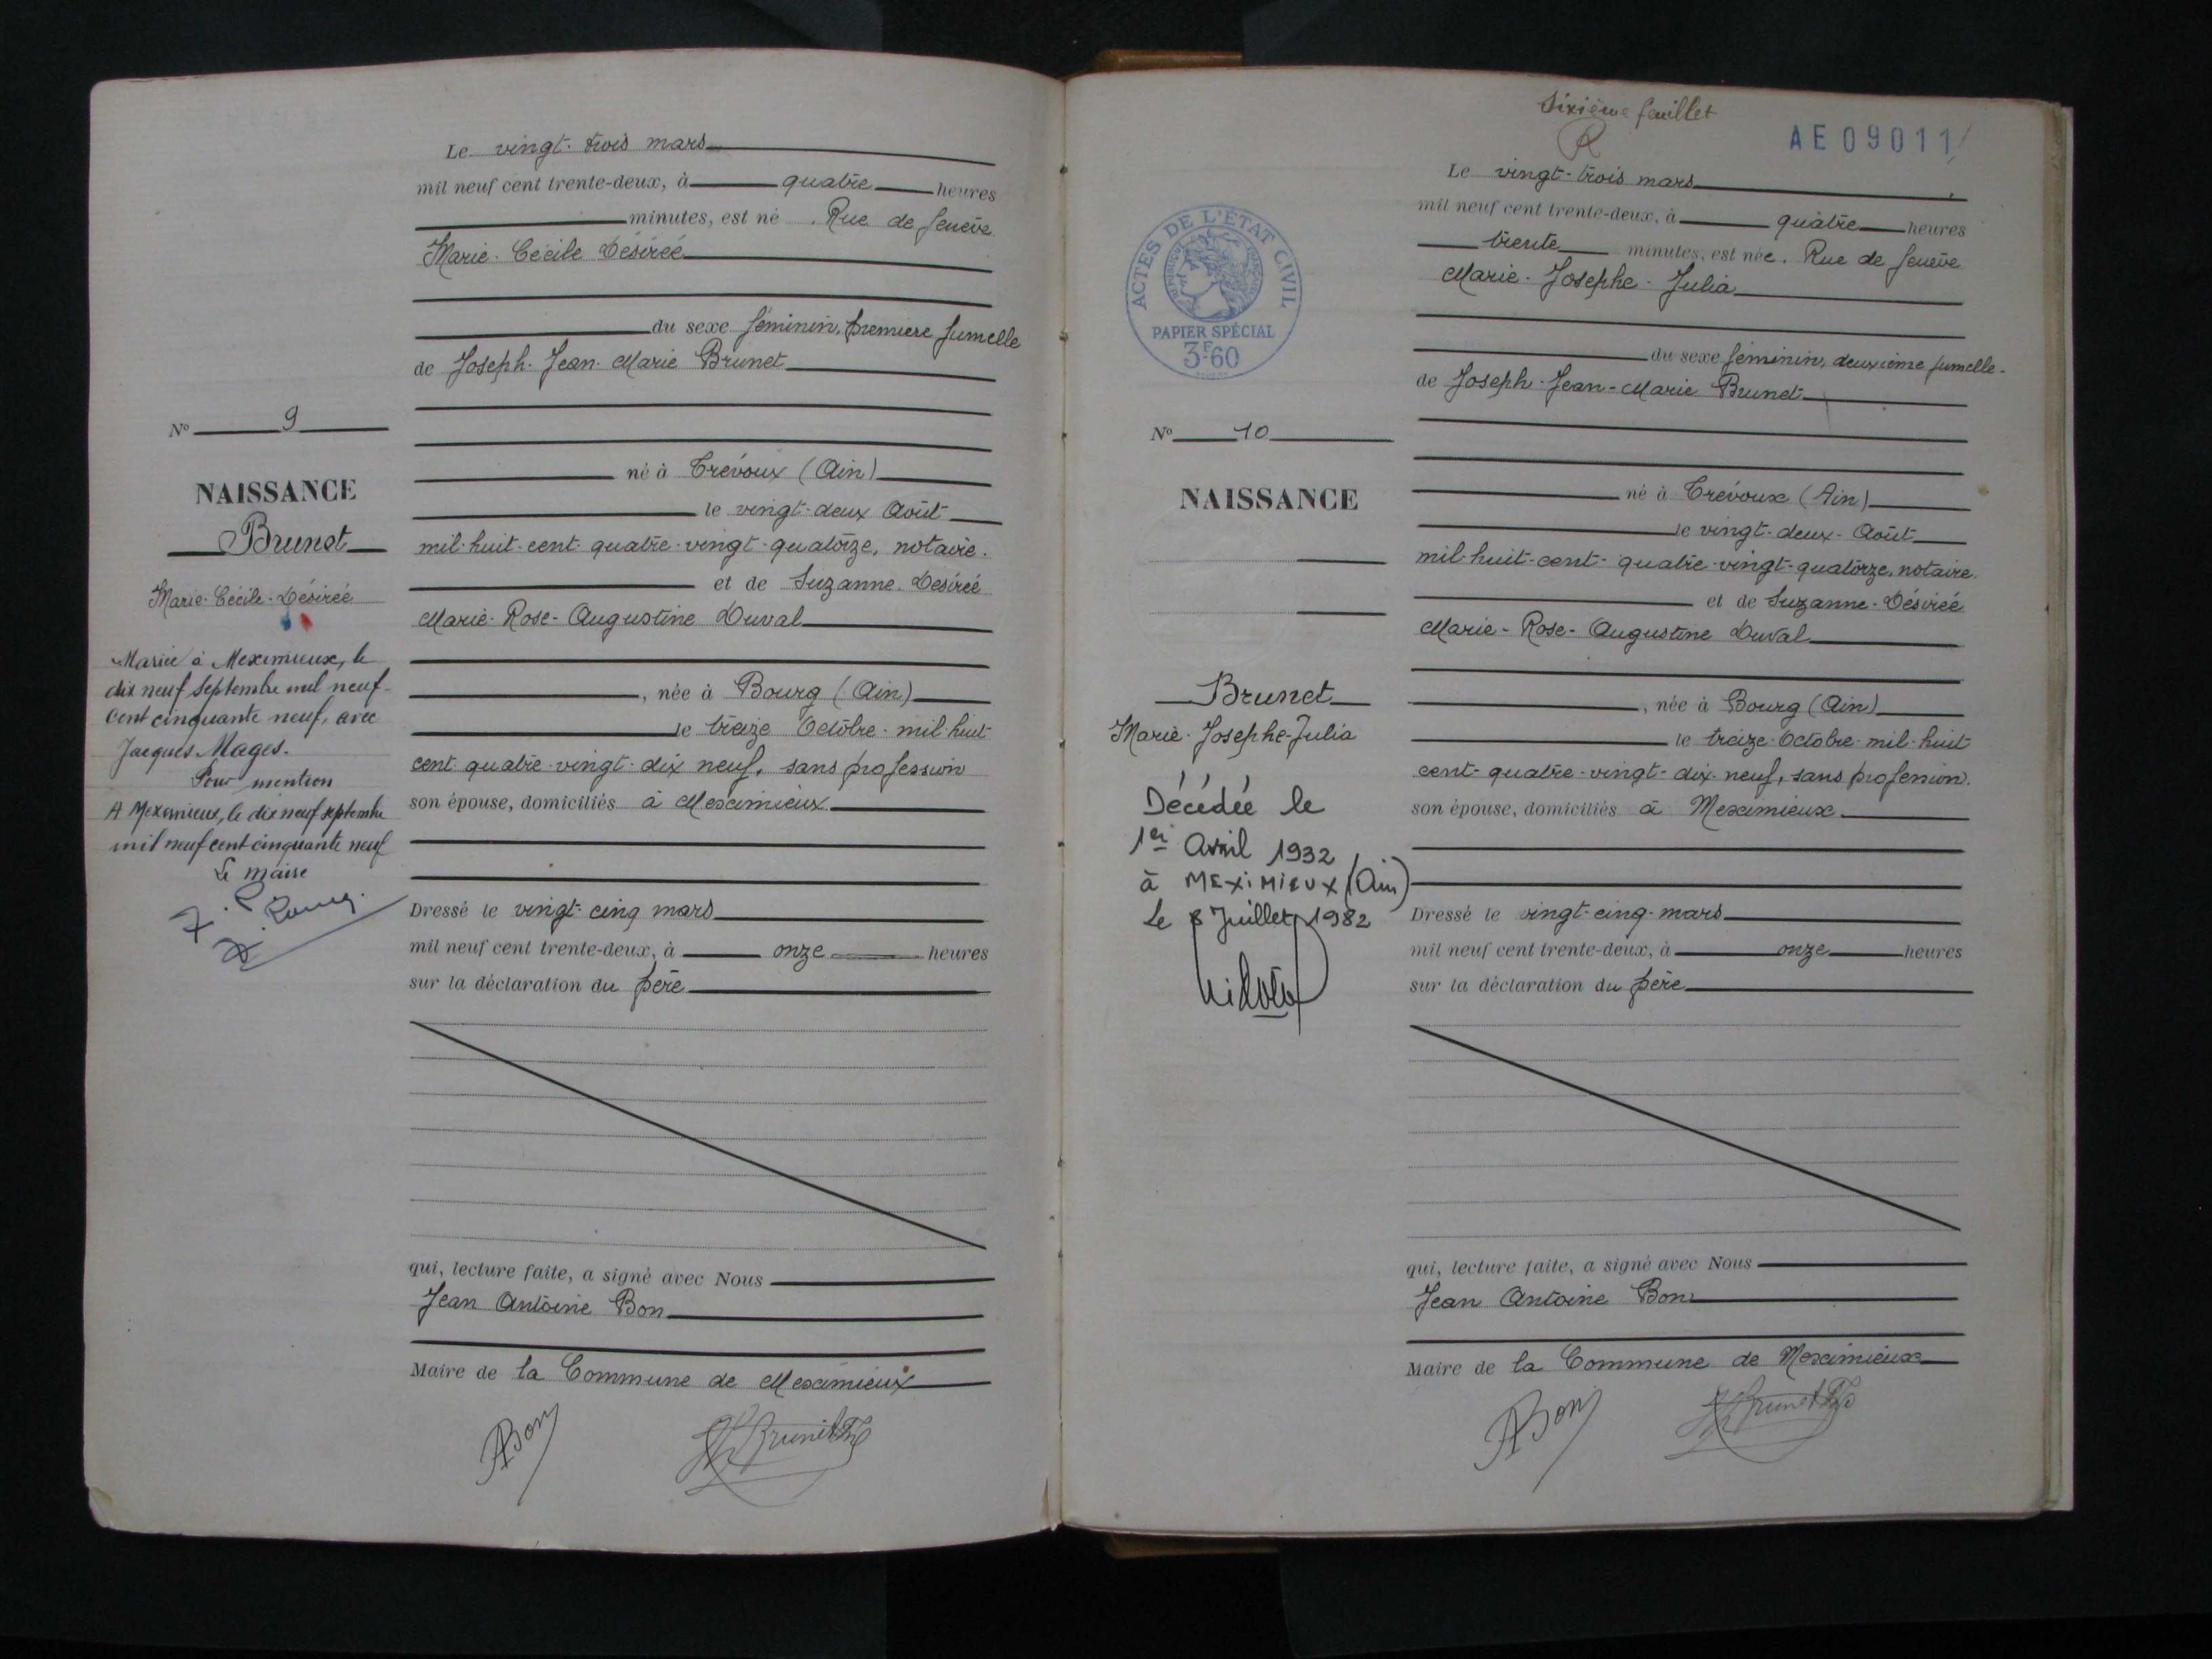 Le vingt-trois mars
mil neuf cent trente-deux, à quatre heures
minutes, est né . Rue de Genève
Marie-Cécile Désirée
du sexe féminin, première jumelle
de Joseph-Jean-Marie Brunet
né à Trévoux (Ain)
le vingt-deux Août
mil-huit-cent-quatre-vingt-quatorze, notaire.
et de Suzanne-Désirée
Marie-Rose-Augustine Duval
, née à Bourg (Ain)
le treize Octobre-mil-huit
cent-quatre-vingt-dix neuf, sans profession
son épouse, domiciliés à Meximieux
Dressé le vingt-cinq mars
mil neuf cent trente-deux, à onze heures
sur la déclaration du père
qui, lecture faite, a signé avec Nous
Jean Antoine Bon
Maire de la Commune de Meximieux
ABon
Brunet
N° 9
NAISSANCE
Brunet
Marie-Cécile-Désirée
Mariée à Meximieux, le
dix neuf septembre mil neuf-
cent cinquante neuf, avec
Jacques Mages.
Pour mention
A Meximieux, le dix neuf septembre
mil neuf cent cinquante neuf
Le maire
Sixième feuillet
AE09011
Le vingt-trois mars
mil neuf cent trente-deux, à quatre heures
trente minutes, est née. Rue de Genève
Marie-Josephe-Julia
du sexe féminin, deuxième jumelle-
de Joseph-Jean-Marie Brunet
né à Trévoux (Ain)
le vingt-deux-Août
mil-huit-cent-quatre-vingt-quatorze, notaire.
et de Suzanne-Désirée
Marie-Rose-Augustine Duval
, née à Bourg (Ain)
le treize-Octobre-mil-huit
cent-quatre-vingt-dix-neuf, sans profession.
son épouse, domiciliés à Meximieux
Dressé le vingt-cinq-mars
mil neuf cent trente-deux, à onze heures
sur la déclaration du père
qui, lecture faite, a signé avec Nous
Jean Antoine Bon
Maire de la Commune de Meximieux
ABon
Brunet
ACTES DE L'ÉTAT CIVIL
PAPIER SPÉCIAL
3F60
N° 10
NAISSANCE
Brunet
Marie-Josephe-Julia
Décédée le
1er Avril 1932
à MEXIMIEUX (Ain)
Le 8 Juillet 1982